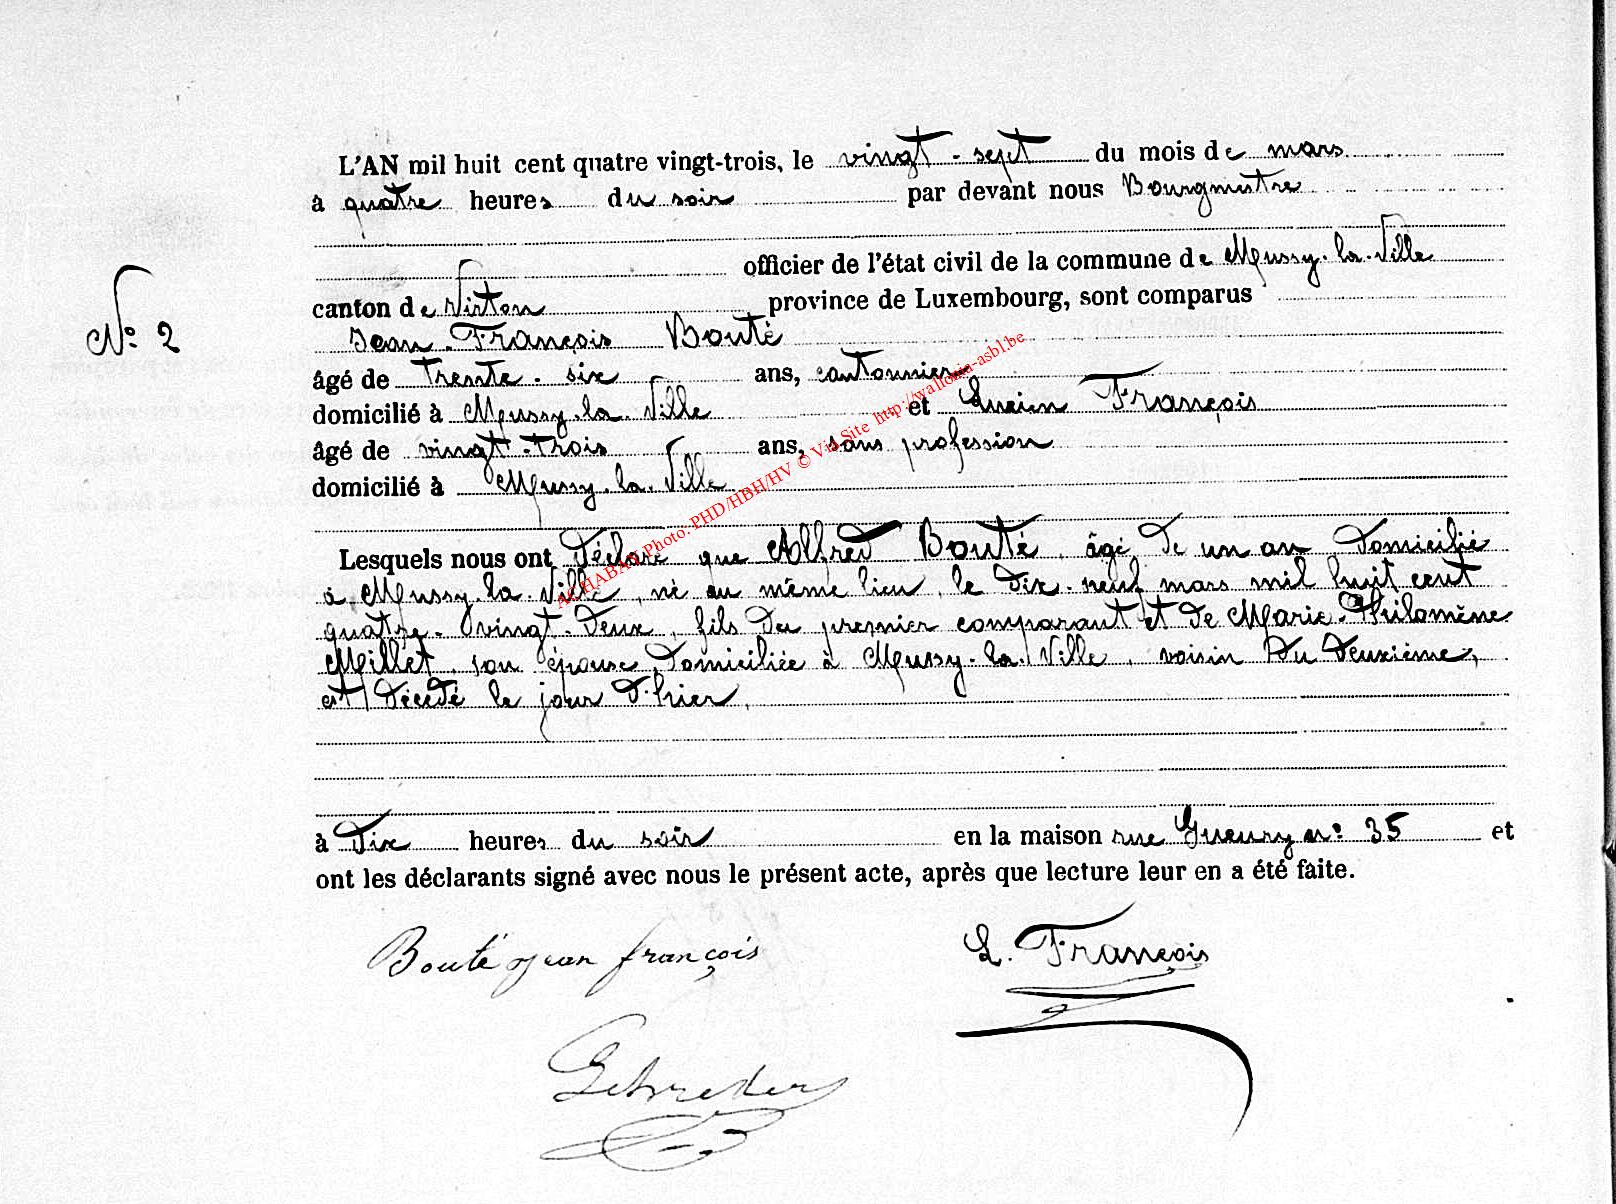 L'AN mil huit cent quatre vingt-trois, le vingt-sept du mois de mars
à quatre heures du soir par devant nous Bourgmestre
officier de l'état civil de la commune de Mussy-la-Ville
canton de Virton province de Luxembourg, sont comparus
Nº 2
Jean-François Bouté
âgé de trente-six ans, cantonnier
domicilié à Mussy-la-Ville et Lucien François
âgé de vingt-trois ans, sans profession
domicilié à Mussy-la-Ville
ACHABAN Photo. PHD/HBH/HV © Via Site http://wallonia-asbl.be
Lesquels nous ont déclaré que Alfred Bouté, âgé de un an domicilié
à Mussy-la-Ville, né au même lieu, le dix-neuf mars mil huit cent
quatre-vingt-deux, fils du premier comparant et de Marie-Philomène
Meillet son épouse, domiciliée à Mussy-la-Ville, voisin du deuxième,
est décédé le jour d'hier,
à dix heures du soir en la maison rue nº 35 et
ont les déclarants signé avec nous le présent acte, après que lecture leur en a été faite.
Bouté jean françois L. François